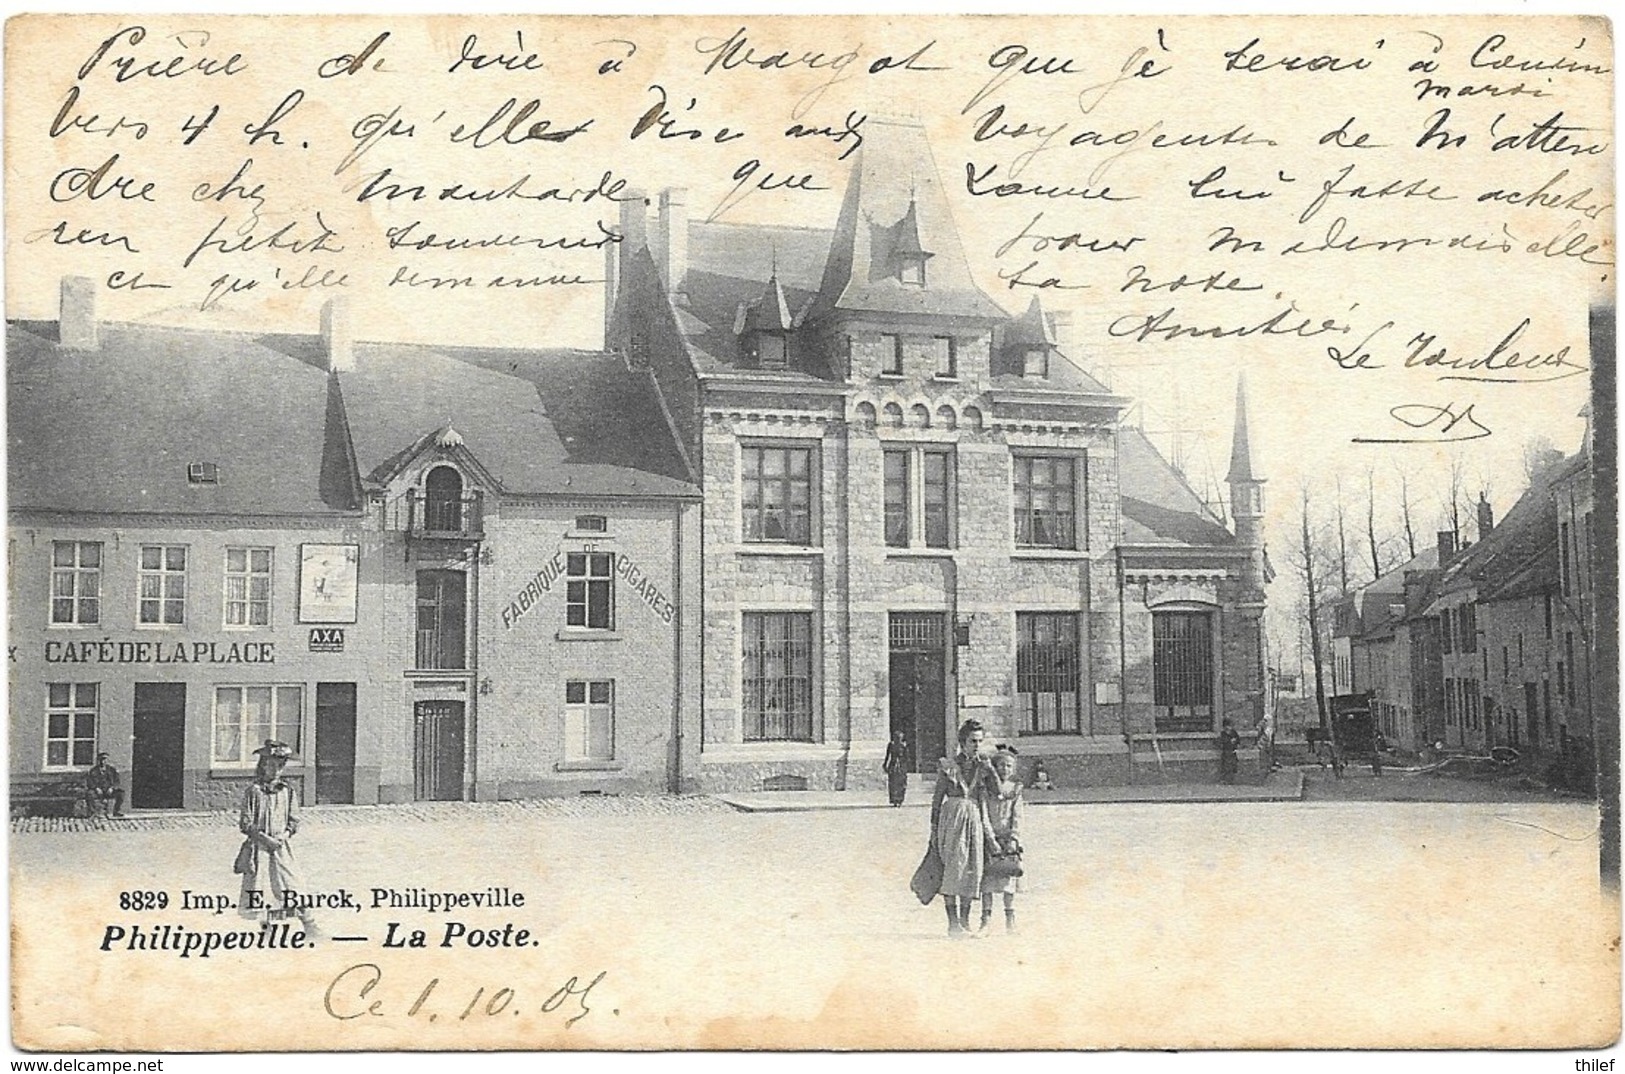 Prière de dire à Margot que je serai à Couvin
mardi
vers 4 h. qu'elle dise aux voyagents de m'atten
dre chez moutarde. que Laure lui fasse acheter
un petit souvenir pour mademoiselle.
et qu'elle demande sa note.
Amitiés
Le
CAFÉ DE LA PLACE
AXA
FABRIQUE DE CIGARES
8829 Imp. E. Burck, Philippeville
Philippeville. — La Poste.
Ce 1. 10. 05.
delcampe.net
thilef